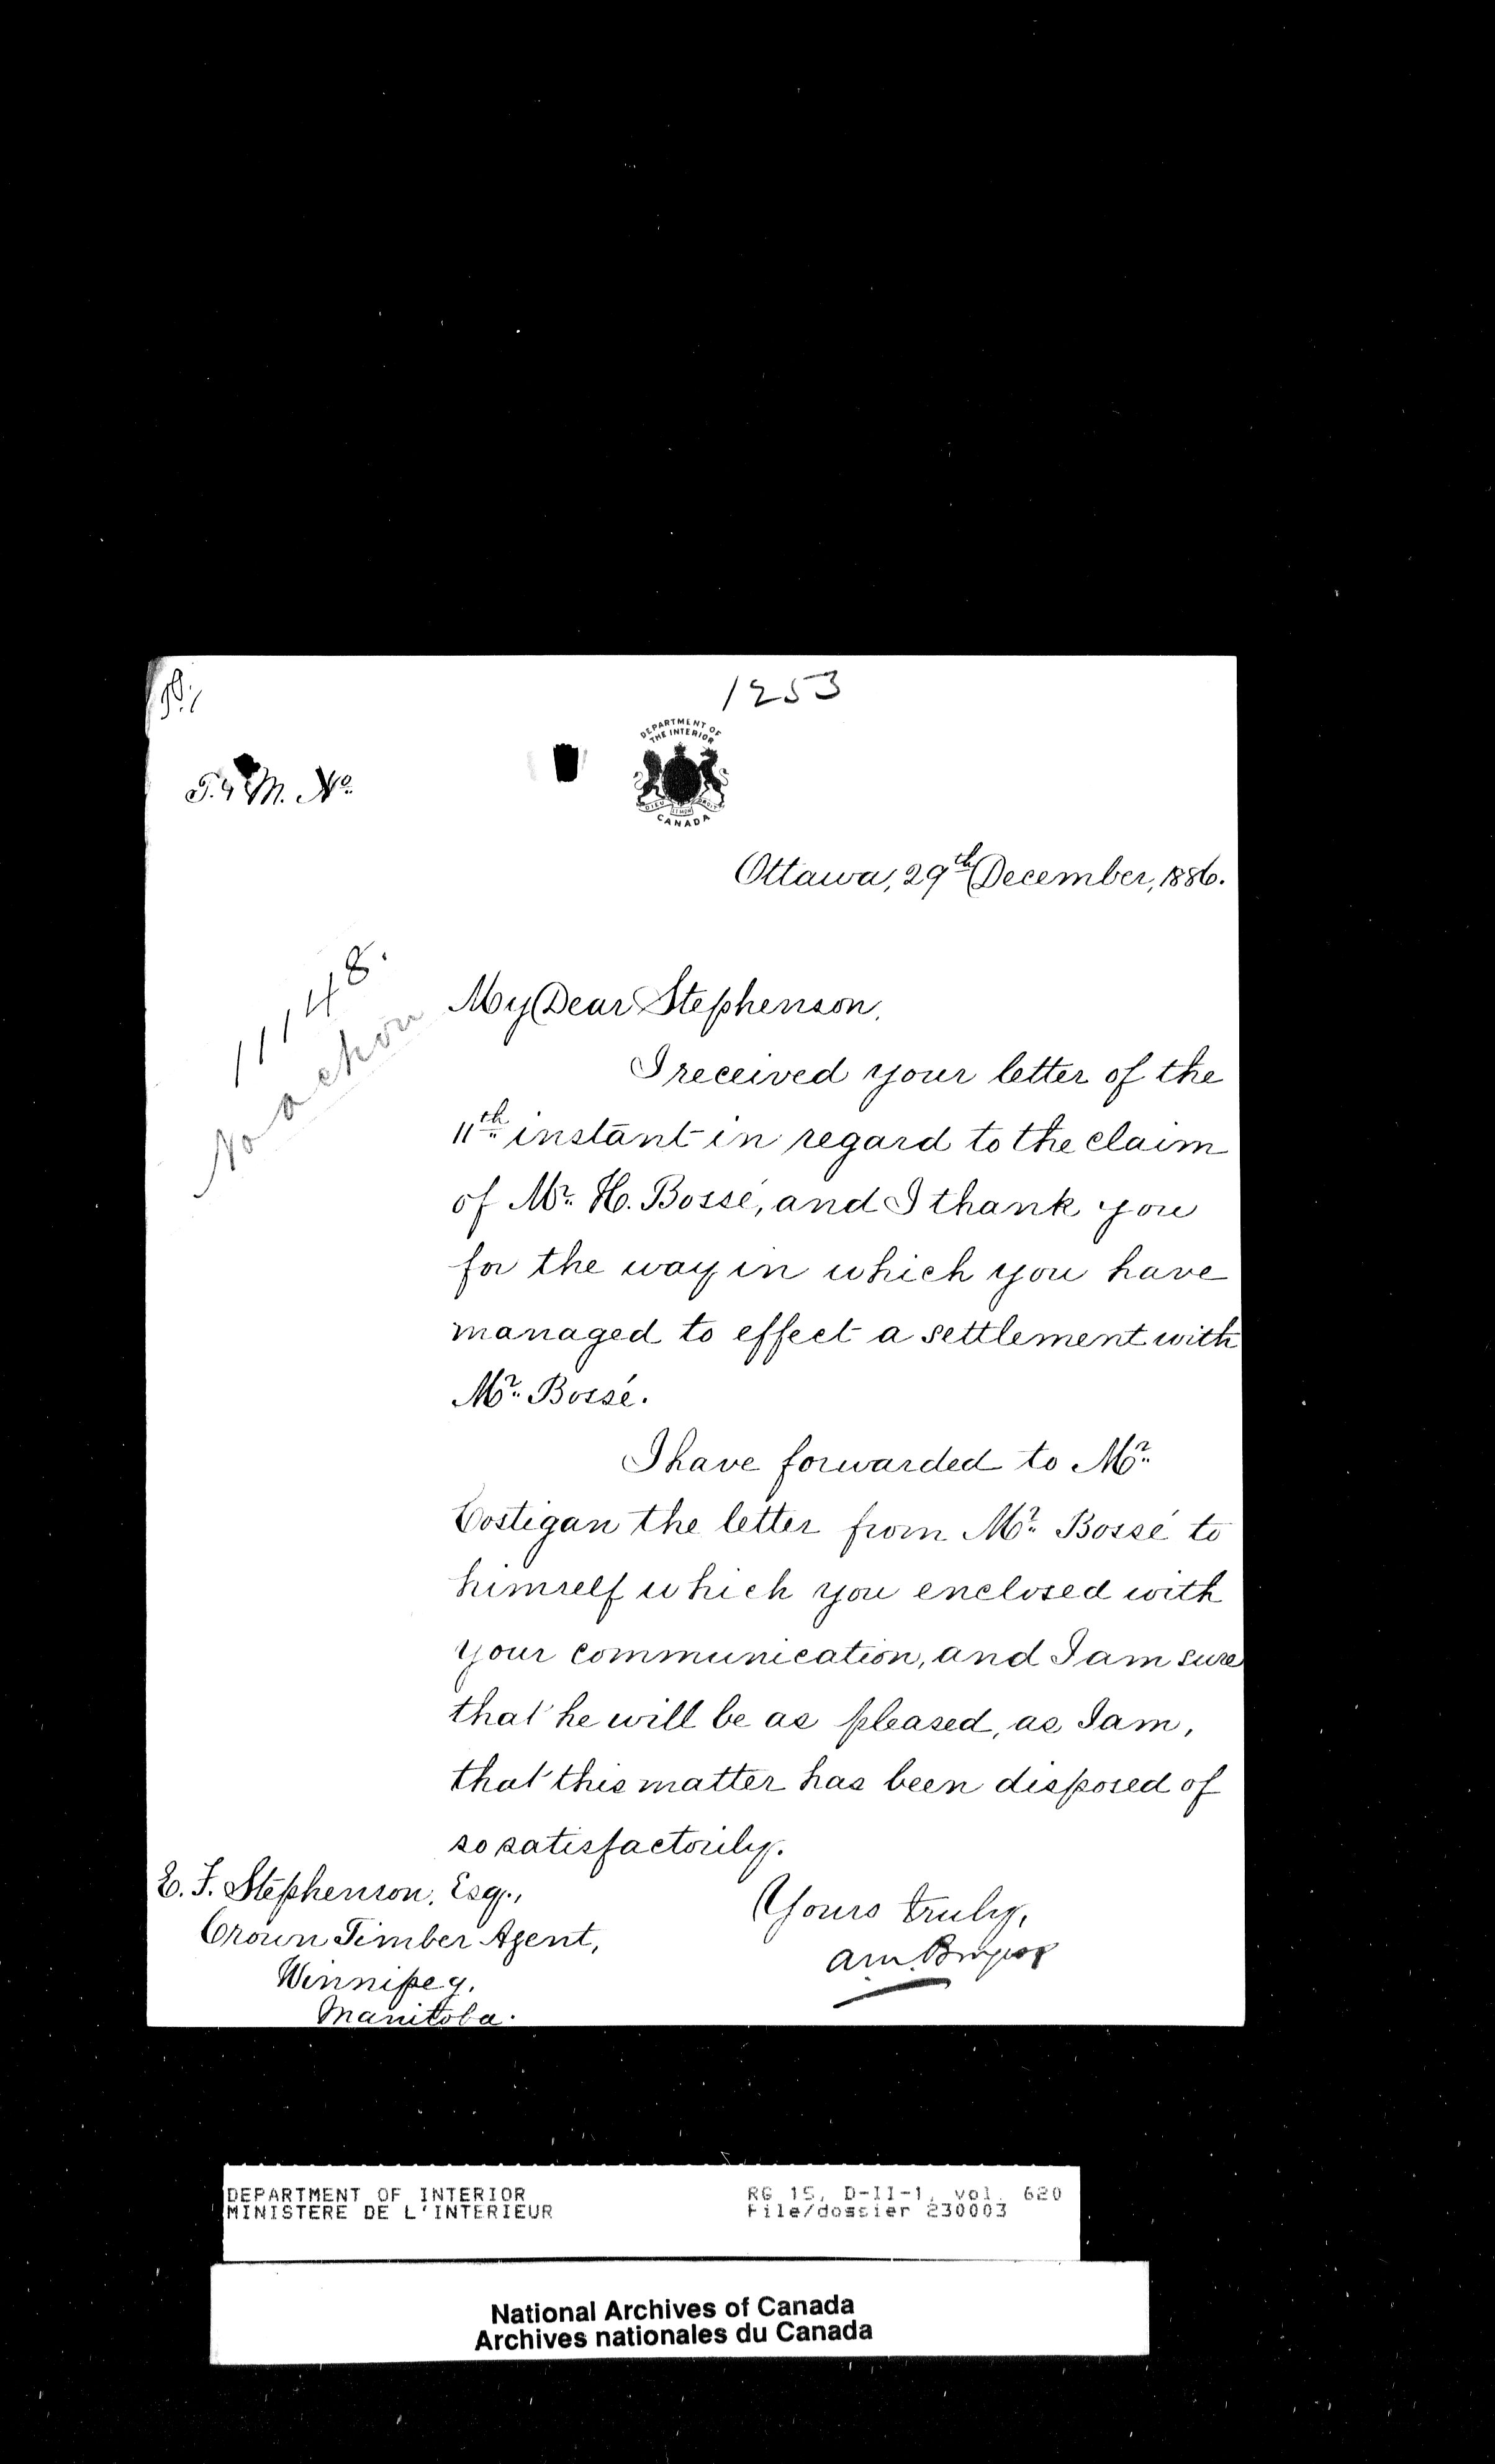 1253
DEPARTMENT OF
THE INTERIOR
CANADA
T. & M. No.
Ottawa, 29th December, 1886.
11148.
No action
My Dear Stephenson,
I received your letter of the
11th instant in regard to the claim
of Mr. H. Bossé, and I thank you
for the way in which you have
managed to effect a settlement with
Mr. Bossé.
I have forwarded to Mr.
Costigan the letter from Mr. Bossé to
himself which you enclosed with
your communication, and I am sure
that he will be as pleased, as I am,
that this matter has been disposed of
so satisfactorily.
Yours truly,
E. F. Stephenson, Esq.,
Crown Timber Agent,
Winnipeg,
Manitoba.
DEPARTMENT OF INTERIOR
MINISTERE DE L'INTERIEUR
RG 15, D-II-1, vol. 620
File/dossier 230003
National Archives of Canada
Archives nationales du Canada